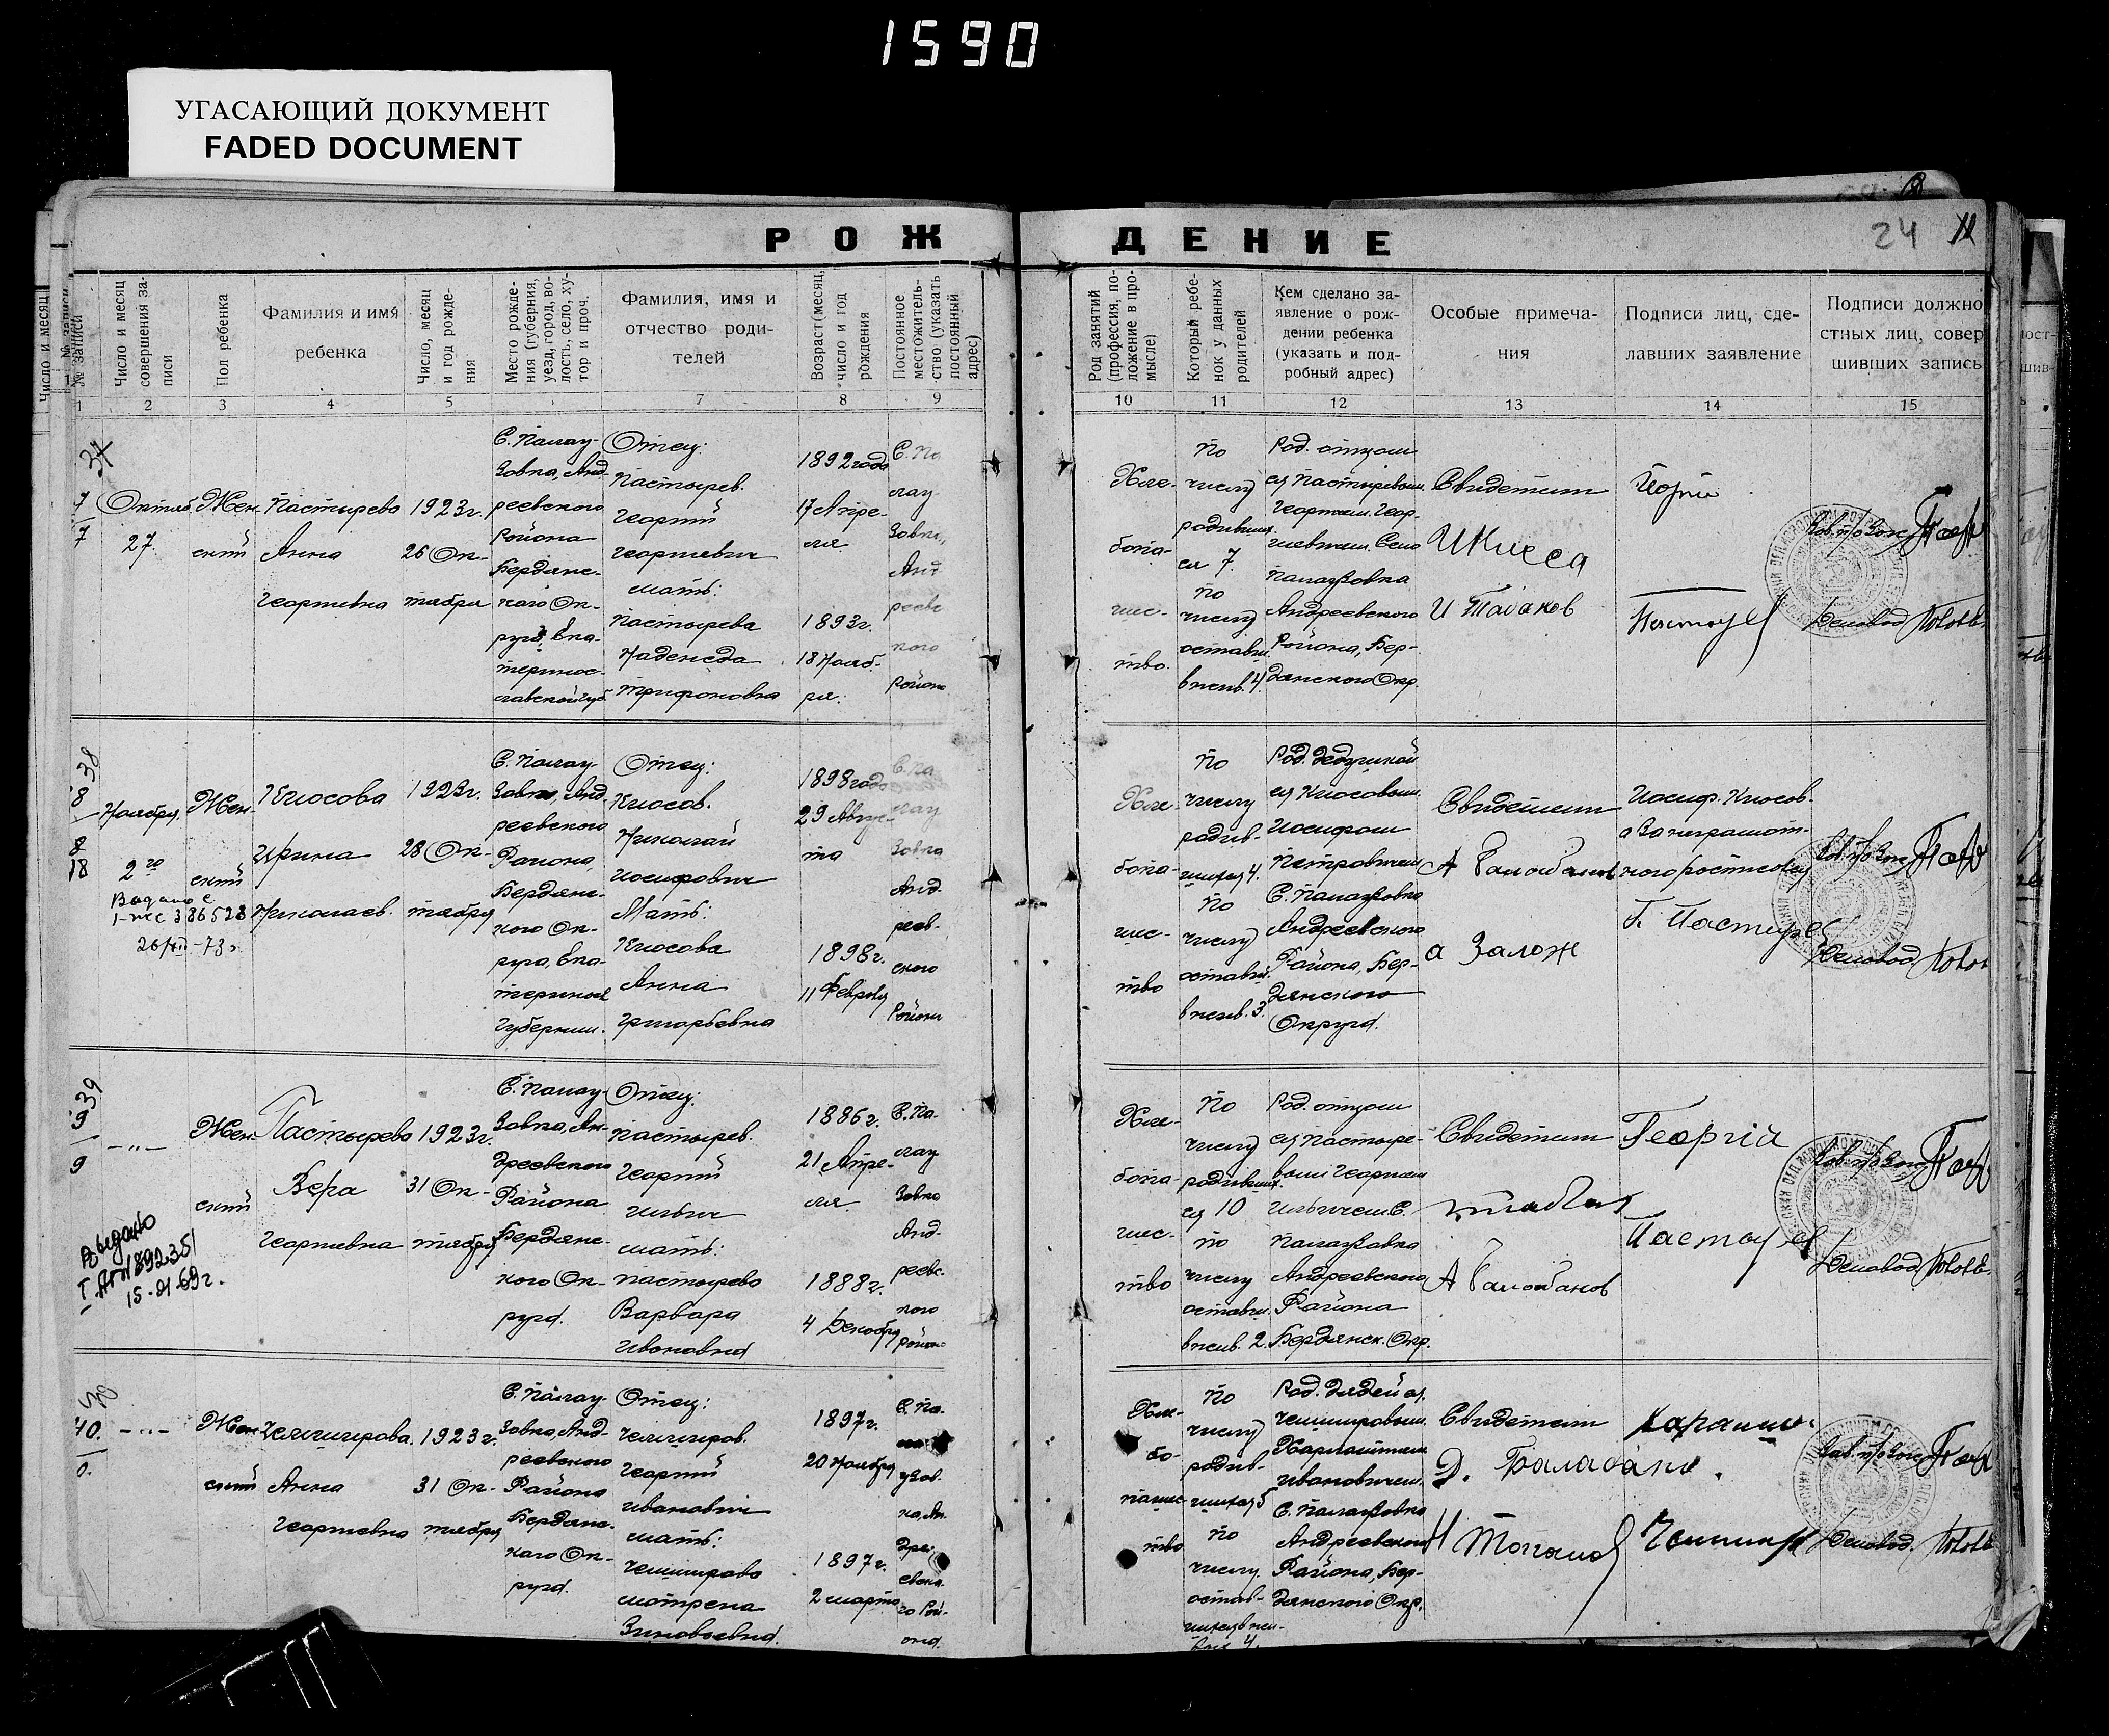 1590
УГАСАЮЩИЙ ДОКУМЕНТ
FADED DOCUMENT
РОЖДЕНИЕ
24
№ записи
Число и месяц совершения за-
писи
Пол ребенка
Фамилия и имя
ребенка
Число, месяц
и год рожде-
ния
Место рожде-
ния (губерния,
уезд, город, во-
лость, село, ху-
тор и проч.
Фамилия, имя и
отчество роди-
телей
Возраст (месяц,
число и год
рождения
Постоянное
местожитель-
ство (указать
постоянный
адрес)
Род занятий
(профессия, по-
ложение в про-
мысле)
Который ребе-
нок у данных
родителей
Кем сделано за-
явление о рож-
дении ребенка
(указать и под-
робный адрес)
Особые примеча-
ния
Подписи лиц, сде-
лавших заявление
Подписи должно
стных лиц, совер
шивших запись
1 2 3 4 5 6 7 8 9 10 11 12 13 14 15
37
7
7
Октяб.
27.
Жен-
ский
Пастырева
Анна
Георгиевна
1923г.
26 Ок-
тября
С. Палау-
зовка, Анд-
реевского
Района
Бердянс-
кого Ок-
руга, Ека-
теринос-
лавской губ
Отец:
Пастырев.
Георгий
Георгиевич
мать:
Пастырева
Надежда
Трифоновна
1892 года
17 Апре-
ля
1893г.
18 Нояб-
ря.
С. Па
лау
зовка,
Анд
реевс
кого
Района
Хле-
бопа-
шес-
тво.
По
числу
родивших.
ся 7.
по
числу
оставш.
в жив. 4.
Род. отцом
ея Пастыревым
Георгием Геор-
гиевичем. Село
Палаузовка
Андреевского
Района, Бер-
дянского Окр.
Свидетели
И Табаков
38
8
8
18
Ноября,
2го
Выдано с
26/XII-73г
Жен-
ский
Кюосова
Ирина
Николаев.
1923г.
28 Ок-
тября
С. Палау-
зовка, Анд
реевского
Района,
Бердянс-
кого Ок-
руга, Ека-
теринося
Губернии.
Отец:
Кюосов.
Николай
Иосифович
Мать:
Кюосова
Анна
Григорьевна
1898 года
29 Авгус-
та
1898г.
11 Февраля
С. Па
лау
зовка
Анд-
реев-
ского
Района
Хле-
бопа-
шес-
тво
По
числу
родив-
шихся 4.
По
числу
оставш.
в жив. 3.
Род. Дедушкой
ея Кюосовым
Иосифом
Петровичем
С. Палаузовка
Андреевского
Района, Бер-
дянского
Округа.
Свидетели
А Балабанов
а Залож
Иосиф. Кюосов.
а за неграмот-
ного росписался
Г. Пастырев
39
9
9
-"-
Выдано
15-VI-69г.
Жен-
ский
Пастырева
Вера
Георгиевна
1923г.
31 Ок-
тября
С. Палау-
зовка, Ан-
дреевского
Района
Бердянс-
кого Ок-
руга.
Отец:
Пастырев.
Георгий
Ильич
мать:
Пастырева
Варвара
Ивановна
1886г.
21 Апре-
ля
1888г.
4 Декабря
С. Па-
лау
зовка
Анд-
реевс-
кого
района
Хле-
бопа
шес-
тво
По
числу
родивших.
ся 10
по
числу
оставш.
в жив. 2.
Род. отцом
ея Пастыре-
вым Георгием
Ильичем С.
Палаузовка
Андреевского
Района
Бердянск. Окр.
Свидетели
А Балабанов
Георгій
Пастырев
40.
0.
-"-
Жен-
ский
Чемширова.
Анна
Георгиевна
1923г.
31 Ок-
тября
С. Палау-
зовка, Анд-
реевского
Района
Бердянс-
кого Ок-
руга.
Отец:
Чемширов.
Георгий
Иванович
мать:
Чемширова
Матрена
Зиновьевна.
1897г.
20 Ноября
1897г.
2 марта
С. Па-
узов-
ка, Ан-
дре-
евско-
го Рай-
она.
Хле-
бо-
паше-
тво
По
числу
родив-
шихся 5
По
числу
остав-
шихся в жи-
вых 4.
Род. дядей ея.
Чемшировым
Харлампием
Ивановичем.
С. Палаузовка
Андреевского
Района, Бер-
дянского Окр.
Свидетели
Д. Балабанов.